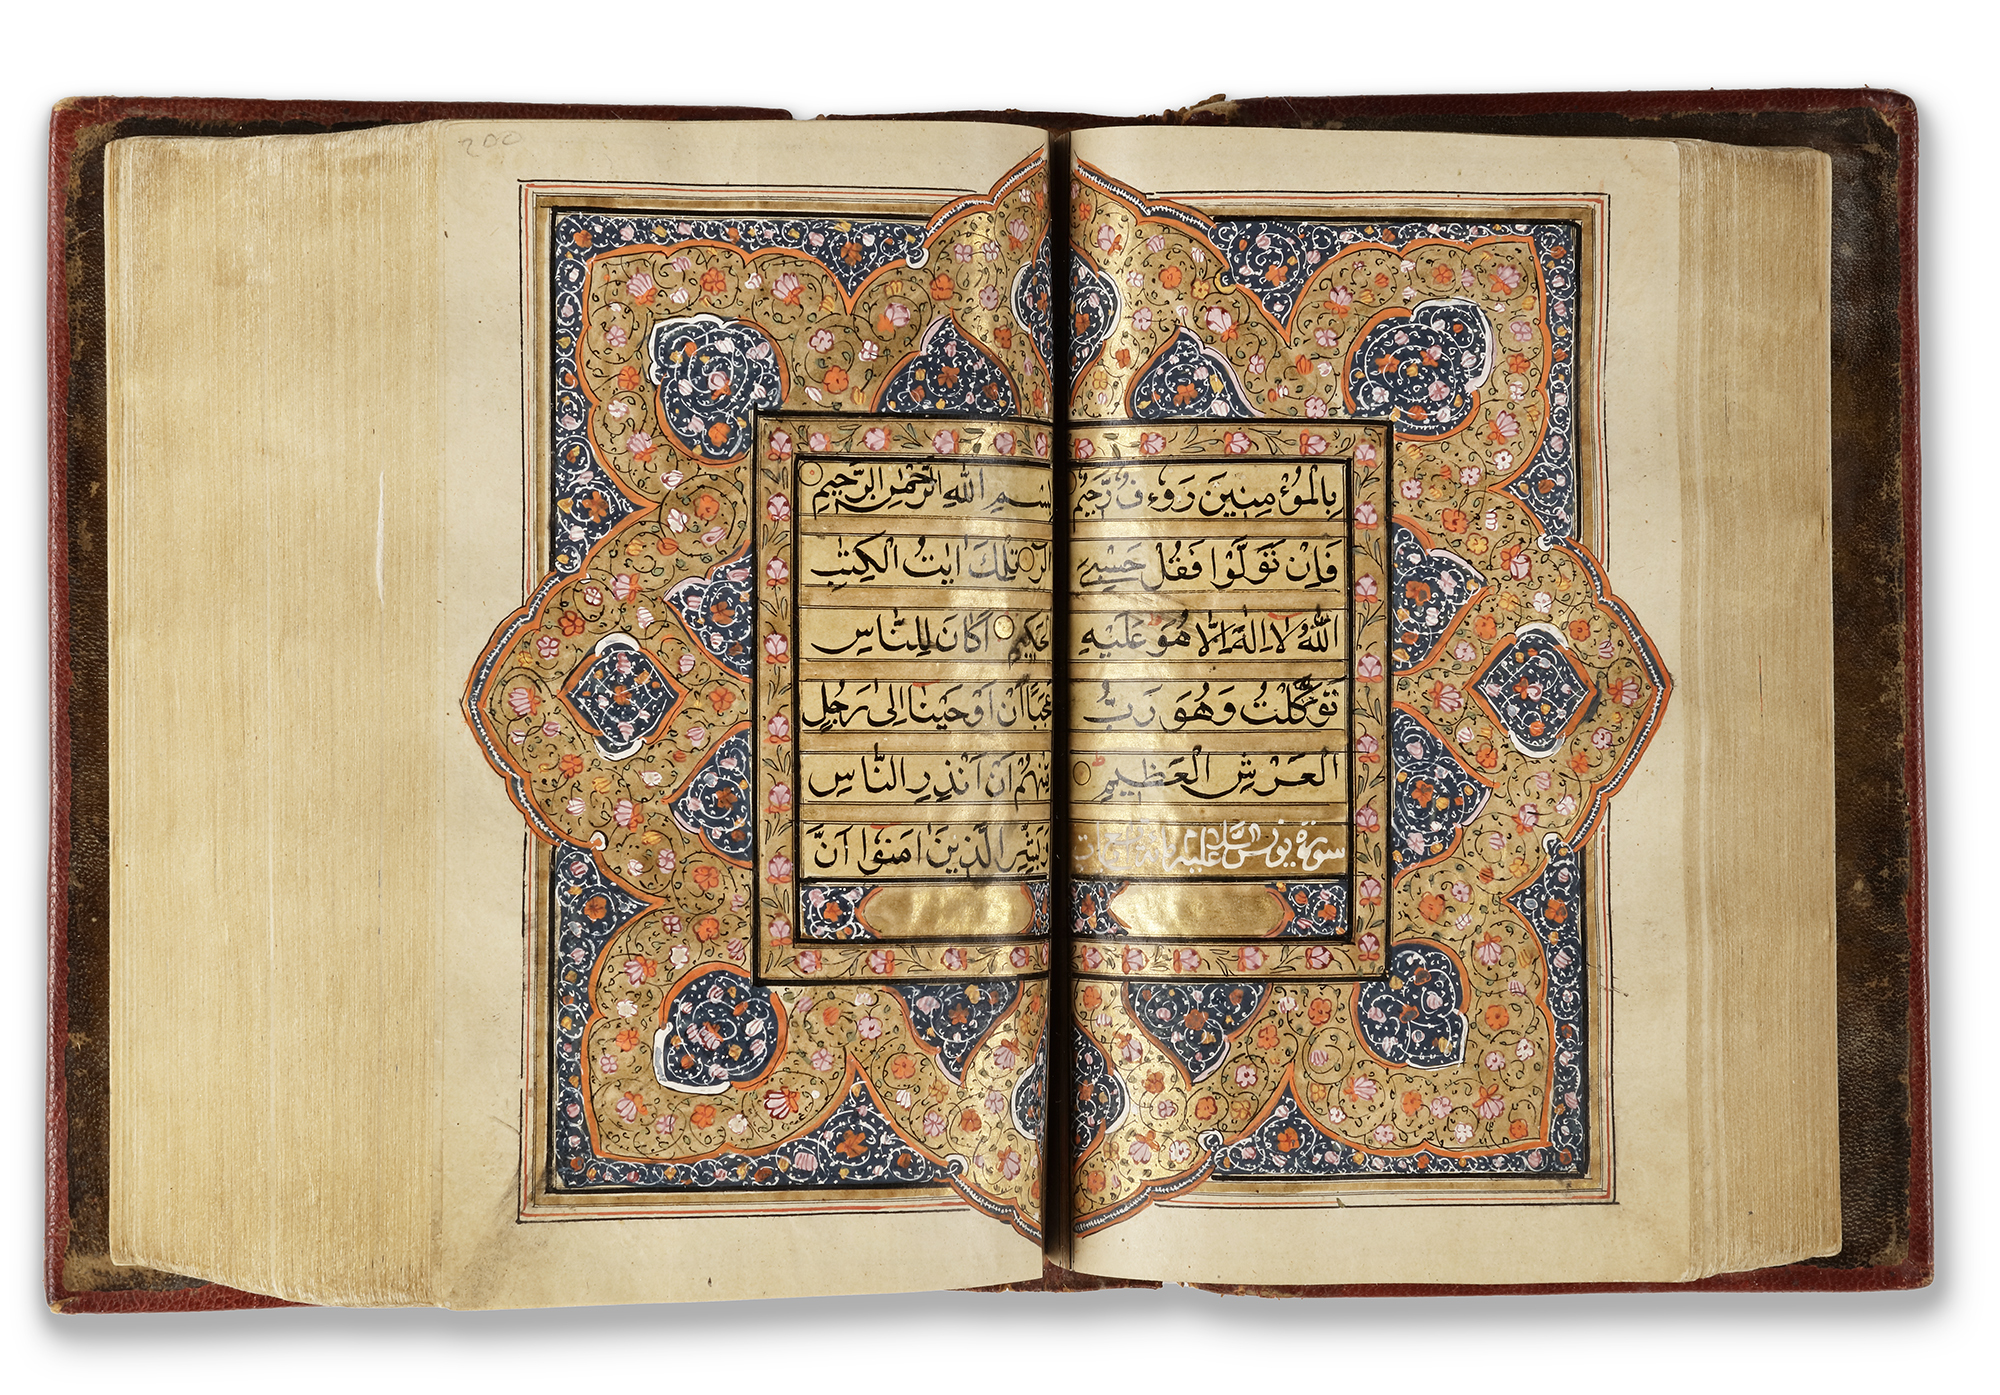 بِالْمُؤْمِنِينَ رَءُوفٌ رَّحِيمٌ
فَإِنْ تَوَلَّوْا فَقُلْ حَسْبِيَ
اللَّهُ لَا إِلٰهَ إِلَّا هُوَ عَلَيْهِ
تَوَكَّلْتُ وَهُوَ رَبُّ
الْعَرْشِ الْعَظِيمِ
سورة يونس عليه
بِسْمِ اللَّهِ الرَّحْمٰنِ الرَّحِيمِ
الٓرٰ تِلْكَ اٰيٰتُ الْكِتٰبِ
الْحَكِيمِ اَكَانَ لِلنَّاسِ
عَجَبًا اَنْ اَوْحَيْنَا اِلٰى رَجُلٍ
مِّنْهُمْ اَنْ اَنْذِرِ النَّاسَ
وَبَشِّرِ الَّذِينَ اٰمَنُوا اَنَّ
200